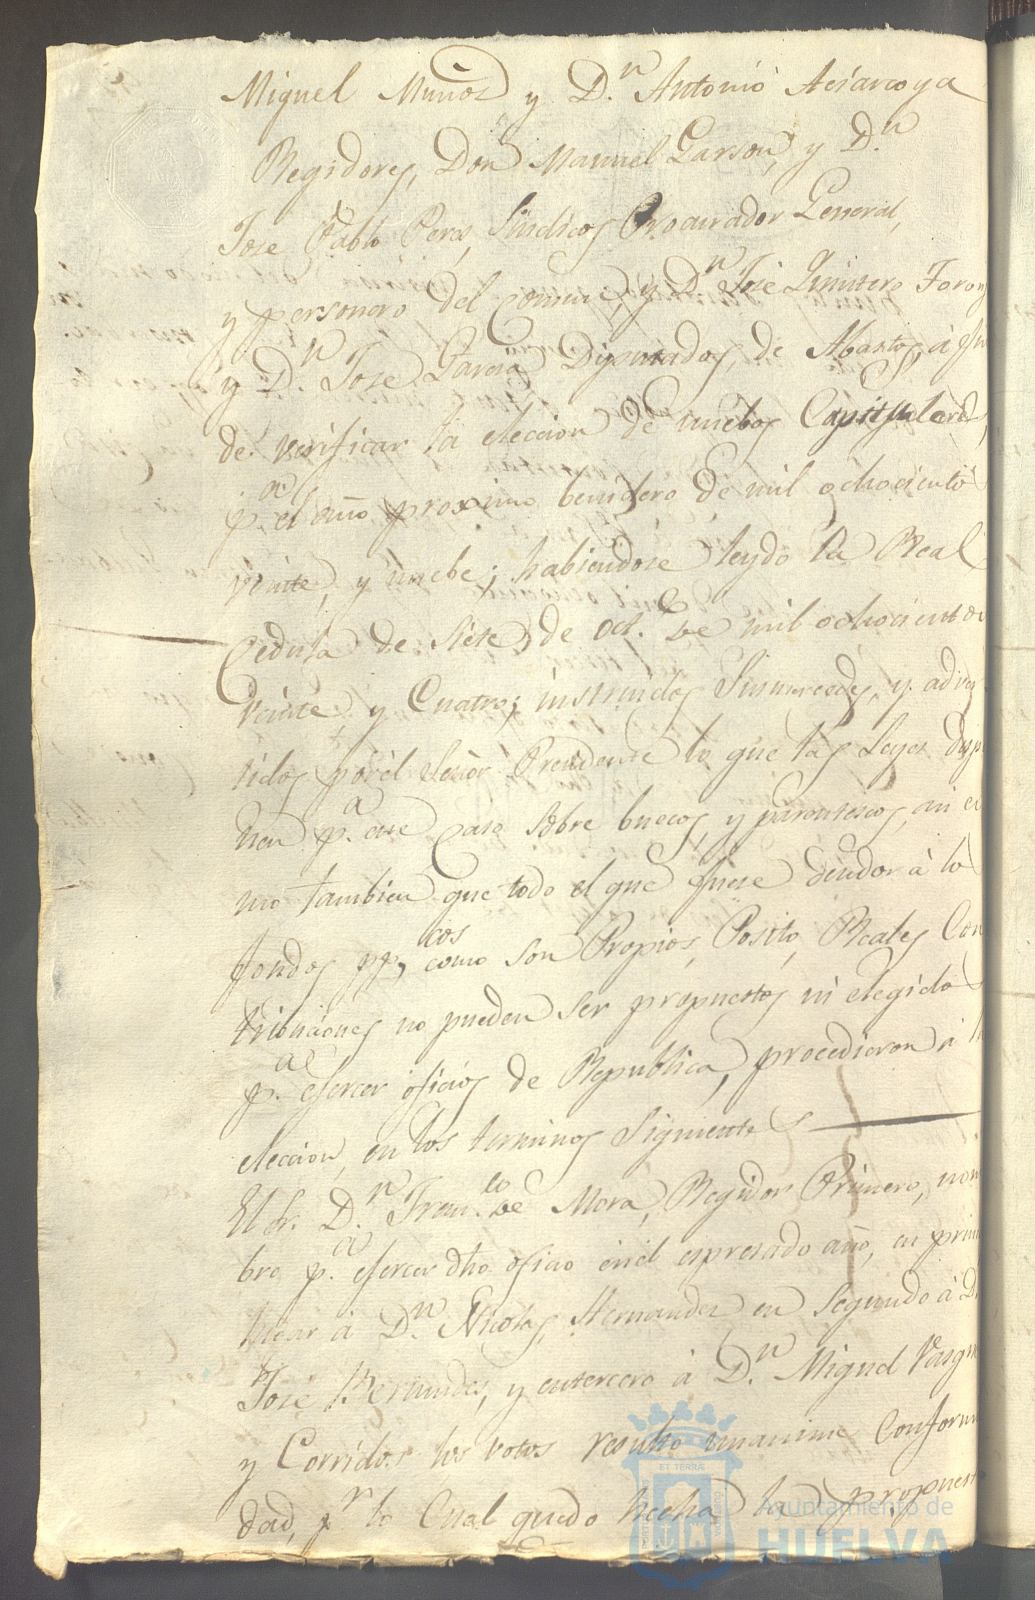 Miguel Muñoz y D.n Antonio
Regidores, Don Manuel Garzon, y D.n
Jose Pablo Perez, Sindicos Procurador General,
y personero del Comun, y D.n José Quintero
y D.n Jose Garcia Diputados, de Abastos, à
de verificar la eleccion de nuebos Capitulares,
p.a el año proximo benidero de mil ochociento
veinte, y nuebe; habiendose leydo la Real
Cedula de Siete, de Oct.e de mil ochociento
veinte y Cuatro; instruidos Sus mercedes, y adver
tidos por el Señor Presidente lo que las Leyes dispo
nen p.a este Caso sobre huecos, y parentescos, asi co
mo tambien que todo el que fuese deudor à lo
fondos pp.cos como son Propios, Posito, Reales Con
trivuciones no pueden ser propuestos ni elegido
p.a ejercer oficios de Republica, procedieron à
eleccion, en los terminos Siguiente
El Sr. D.n Fran.co de Mora, Regidor Primero, nom
bro p.a ejercer dho oficio en el espresado año, en prim
lugar à D.n Nicolas, Hernandez en Segundo à D.
José y en tercero à D.n Miguel
y Corridos los votos resultó unanime Conformi
dad, p.r lo Cual quedo hecha la propuest
Ayuntamiento de
HUELVA